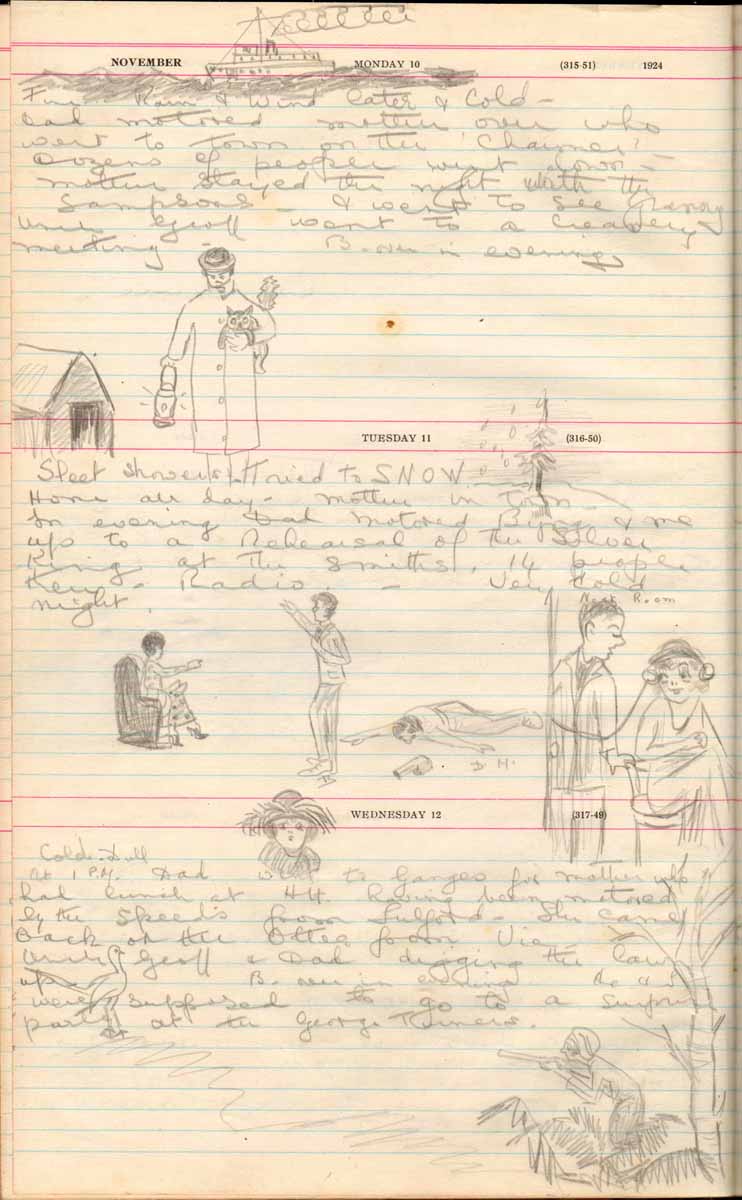 NOVEMBER MONDAY 10 (315-51) 1924
Fine - Rain & Wind later & Cold -
Dad motored mother over who
went to town on the "Charmer"
Dozens of people went down -
mother stayed the night with the
Sampsons - I went to see Granny
Uncle Geoff went to a creamery
meeting - B. over in evening
TUESDAY 11 (316-50)
Sleet showers Tried to SNOW
Home all day - mother in town -
In evening Dad motored & me
up to a Rehearsal of the Silver
King at the Smiths. 14 people
there - Radio. - Very Cold
night.
Next Room
D H.
WEDNESDAY 12 (317-49)
Cold & Dull
At 1 P.M. Dad went to Ganges for mother who
had lunch at H.H. having been motored
by the Speeds from Fulford - She came
Back on the Otter from Vic -
Uncle Geoff & Dad digging the lawn
up - B. over in evening
were supposed to go to a Surprise
party at the George Turners.